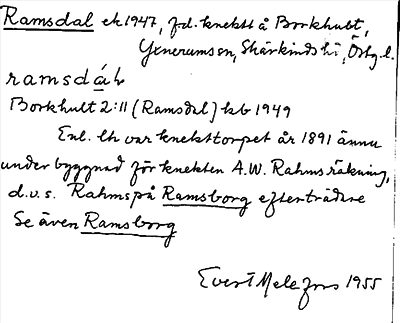 Ramsdal ek 1947, f.d. knektt å Borkhult,
Yxnerums sn, Skärkinds hd, Östg. l.
ramsdál
Borkhult 2:11 (Ramsdal) kb 1949
Enl. lh var knekttorpet år 1891 ännu
under byggnad för knekten A.W. Rahms räkning,
d.v.s. Rahms på Ramsborg efterträdare
Se även Ramsborg
Evert Melefors 1955